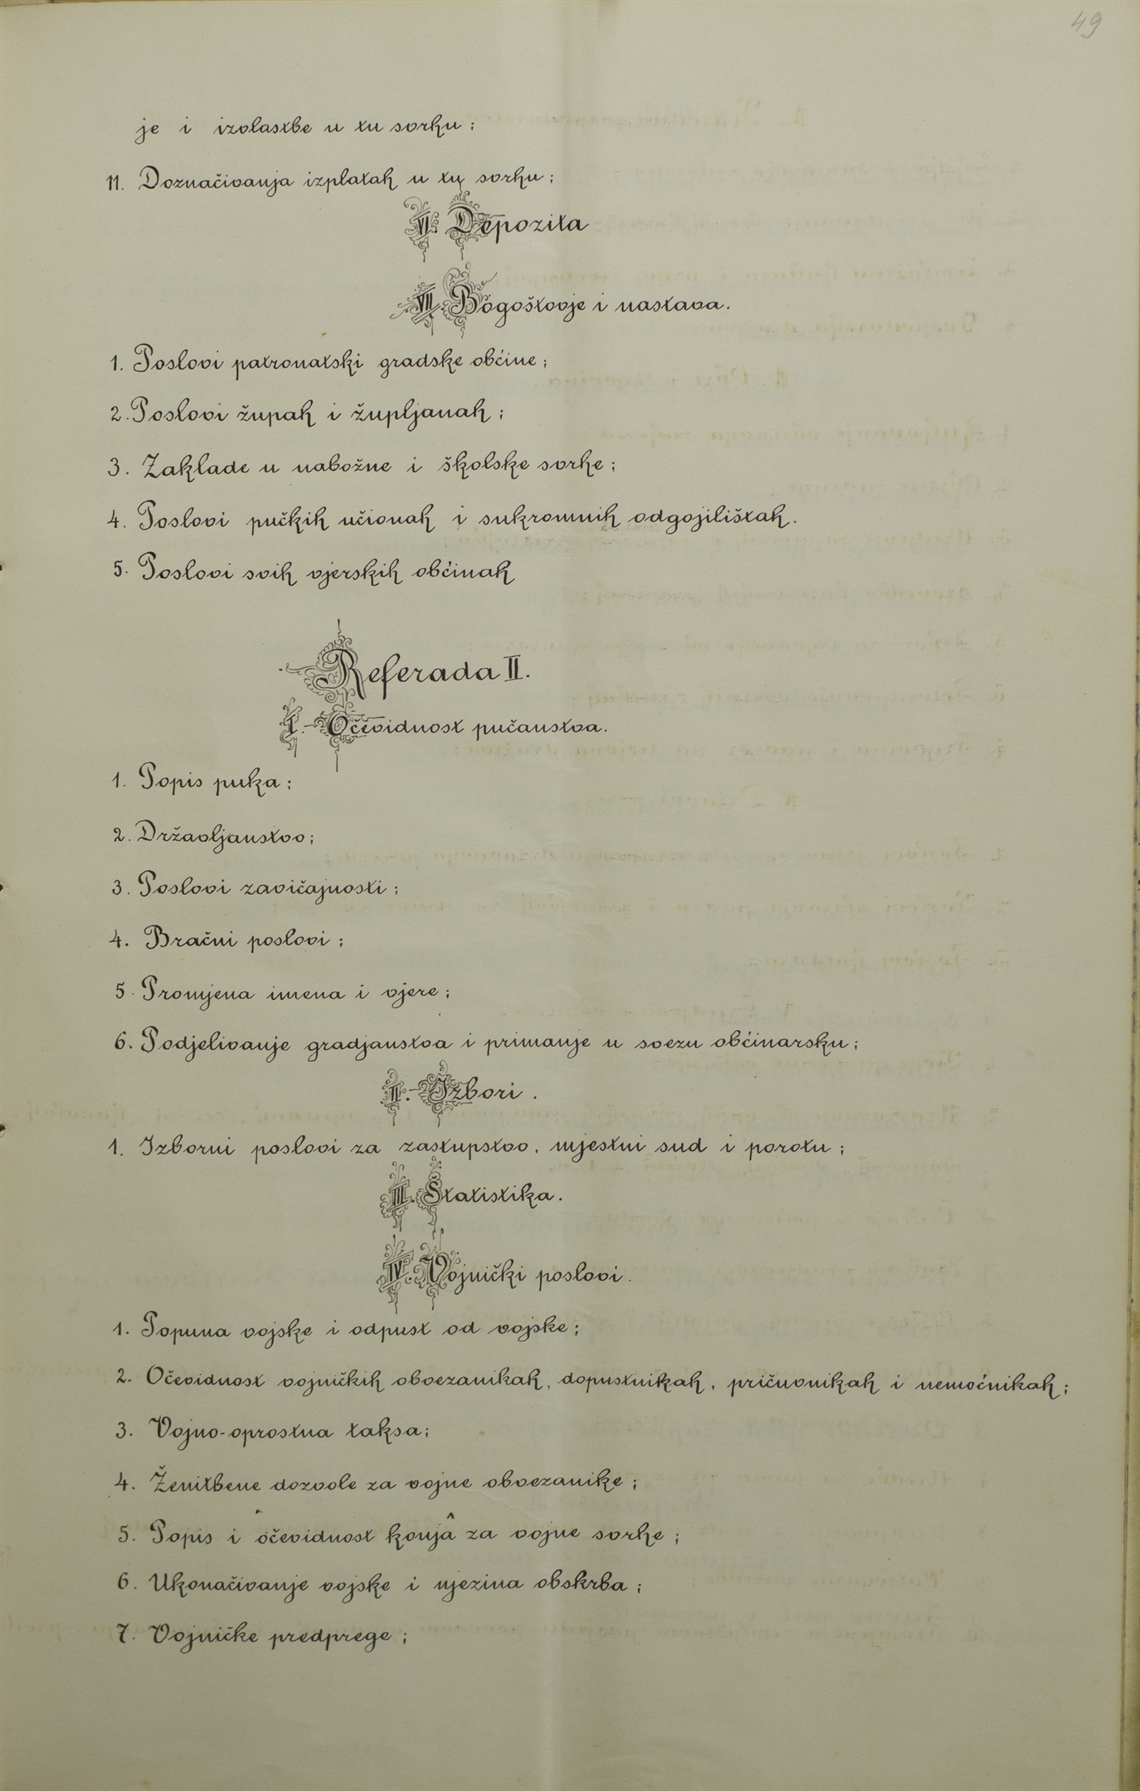 49
je i izvlastbe u tu svrhu;
11. Doznačivanja izplatah u tu svrhu;
VI. Depozita
VII. Bogoštovje i nastava.
1. Poslovi patronatski gradske obćine;
2. Poslovi župah i župljanah;
3. Zaklade u nabožne i školske svrhe;
4. Poslovi pučkih učionah i sukromnih odgojilištah.
5. Poslovi svih vjerskih obćinah
Referada II.
I. Očevidnost pučanstva.
1. Popis puka;
2. Državljanstvo;
3. Poslovi zavičajnosti;
4. Bračni poslovi;
5. Promjena imena i vjere;
6. Podjelivanje gradjanstva i primanje u svezu obćinarsku;
II. Izbori.
1. Izborni poslovi za zastupstvo, mjestni sud i porotu;
III. Statistika.
IV. Vojnički poslovi.
1. Popuna vojske i odpust od vojske;
2. Očevidnost vojničkih obvezanikah, dopustnikah, pričuvnikah i nemoćnikah;
3. Vojno-oprostna taksa;
4. Ženitbene dozvole za vojne obvezanike;
5. Popis i očevidnost konjâ za vojne svrhe;
6. Ukonačivanje vojske i njezina obskrba;
7. Vojničke predprege;